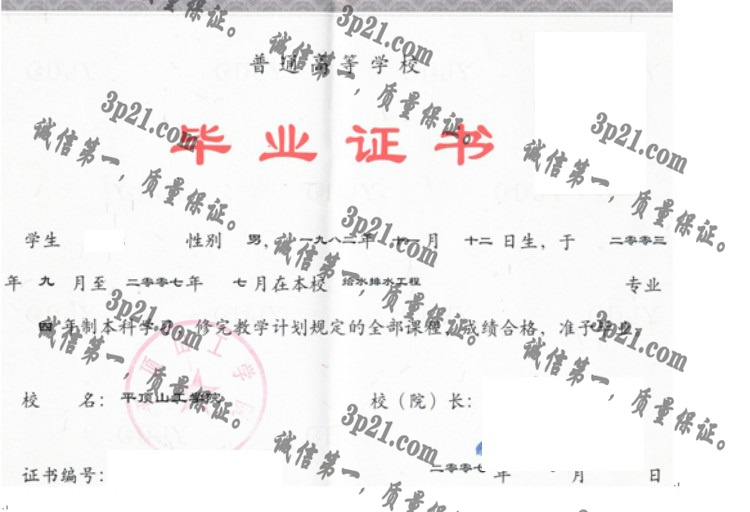 普通高等学校
毕业证书
学生 性别 男，一九八二年 十一月 十二日生，于 二零零三
年 九 月至 二零零七年 七月在本校 给水排水工程 专业
四年制本科学习，修完教学计划规定的全部课程，成绩合格，准予毕业。
校 名：平顶山工学院 校（院）长：
证书编号： 二零零七 年 月 日
3p21.com
诚信第一，质量保证。
3p21.com
诚信第一，质量保证。
3p21.com
诚信第一，质量保证。
3p21.com
诚信第一，质量保证。
3p21.com
诚信第一，质量保证。
3p21.com
诚信第一，质量保证。
3p21.com
诚信第一，质量保证。